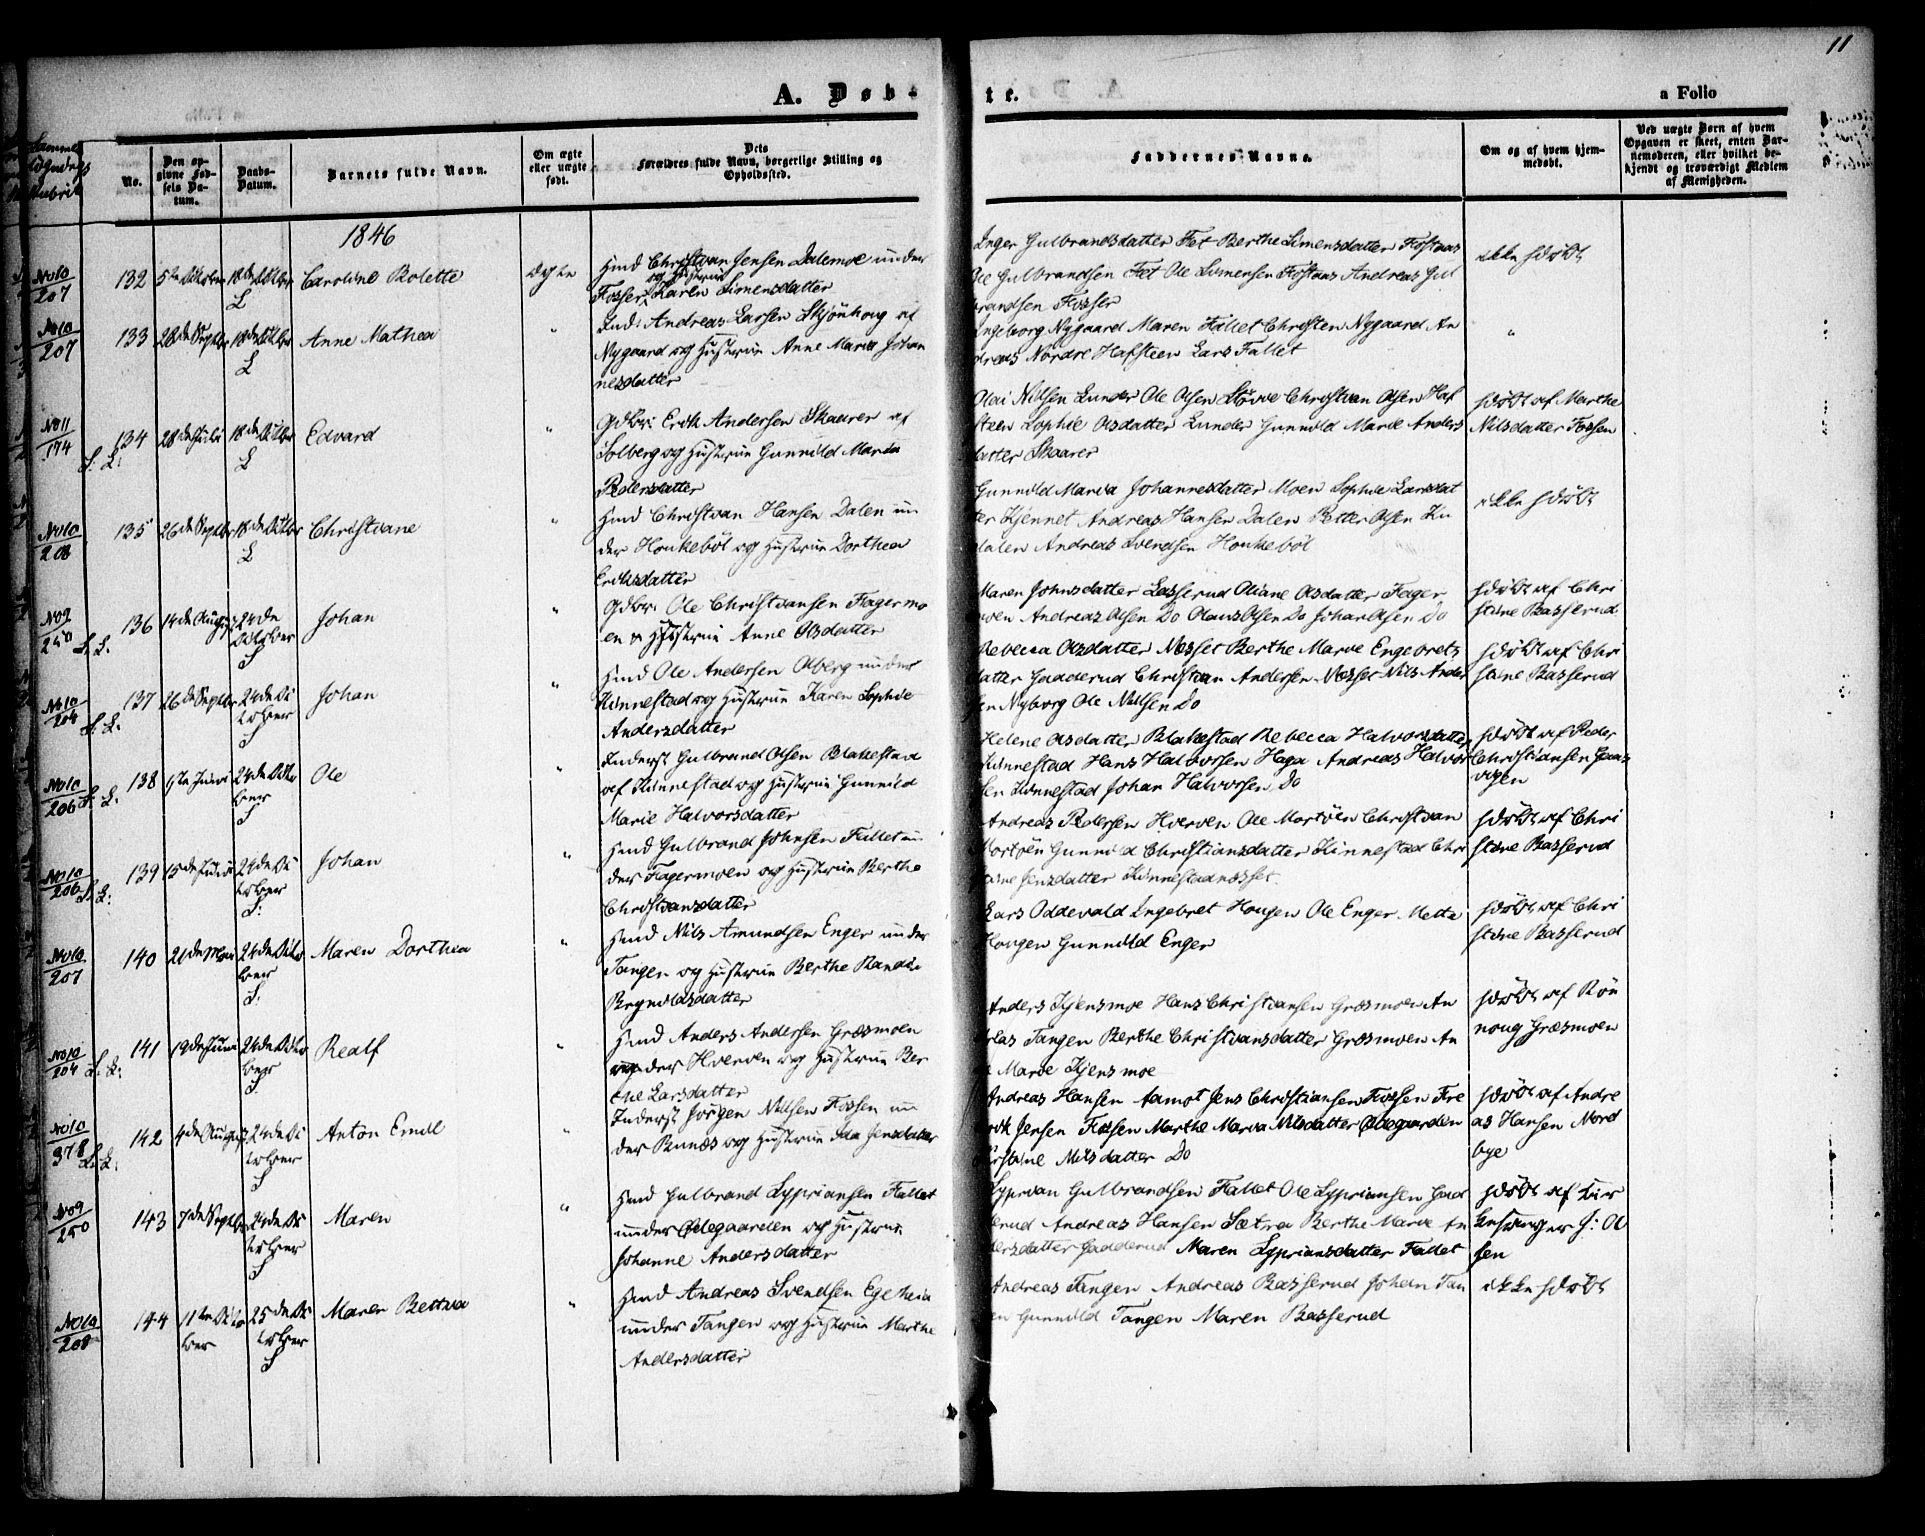 11
A. Døb-
te.
a Folio
No.
Den op-
givne Fød-
sels Da-
tum.
Daabs-
Datum.
Barnets fulde Navn.
Om ægte
eller uægte
født.
Dets
Forældres fulde Navn, borgerlige Stilling og
Opholdssted.
Faddernes Navne.
Om og af hvem hjem-
medøbt.
Ved uægte Børn af hvem
Opgaven er skeet, enten Bar-
nemoderen, eller hvilket be-
kjendt og troværdigt Medlem
af Menigheden.
1846
No 10
207
132
Caroline Bolette
ægte
Huusmd Christian Jensen Dalemoe under
og Hustrue
Fosser Karen Simensdatter
Inger Gulbrandsdatter Fet Berthe Simensdatter
Ole Gulbrandsen Fet Ole Simensen Andreas Gul
brandsen Fosser
ikke hjdøbt
No 10
207
133
28de Septbr 18de Octbr
L
Anne Mathea
"
Inds: Andreas Larsen Skjönhoug af
Nygaard og Hustrue Anne Maria Johan
nesdatter
Ingeborg Nygaard Maren Fallet Christen Nygaard An
dreas Nordre Hafsteen Lars Fallet
"
No 11
174
134
28de Juli 18de Octbr
L
Edvard
"
Gdbr: Erik Andersen Skaarer af
Solberg og Hustrue Gunnild Maria
Pedersdatter
Olai Nilsen Lunder Ole Olsen Christian Olsen Haf
steen Sophie Olsdatter Lunder Gunnild Marie Anders
datter Skaarer
hjdøbt af Marthe
Nilsdatter Fossen
No 10
208
135
26de Septbr 18de Octbr
L
Christiane
"
Hmd Christian Hansen Dalen un
der Honkeböl og Hustrue Dorthea
Eriksdatter
Gunnild Maria Johannesdatter Moen Sophie Larsdat
ter Kjennet Andreas Hansen Dalen Petter Olsen Li
dalen Andreas Svendsen Honkeböl
ikke hjdøbt
No 9
250
136
14de August 24de
October
Johan
"
Gdbr: Ole Christiansen Fagermo
en & Hustrue Anne Olsdatter
Maren Johnsdatter Lasserud Oliane Olsdatter Fager
moen Andreas Olsen Do Olaus Olsen Do Johan Olsen Do
hjdøbt af Chri
stine Basserud
No 10
204
137
26de Septbr 24de Oc
tober
Johan
"
Hmd Ole Andersen Oberg under
Kinnestad og Hustrue Karen Sophie
Andersdatter
Rebecca Olsdatter Nesset Berthe Marie Engebrets
datter Gadderud Christian Andersen Nesset Nils Ander
sen Nyborg Ole Nilsen Do
hjdøbt af Chri
stine Basserud
No 10
206
138
6te Juni 24de Octo
ber
Ole
"
Inderst Gulbrand Olsen Blakestad
af Kinnestad og Hustrue Gunnild
Marie Halvorsdatter
Helene Olsdatter Blakestad Rebecca Halvorsdatter
Kinnestad Hans Halvorsen Haga Andreas Halvor
sen Kinnestad Johan Halvorsen Do
hjdøbt af Peder
Christiansen
No 10
206
139
15de Juni 24de Oc
tober
Johan
"
Hmd Gulbrand Johnsen Fallet un
der Fagermoen og Hustrue Berthe
Christiansdatter
Andreas Pedersen Hverven Ole Mortöen Christian
Mortöen Gunnild Christiansdatter Kinnestad Chri
stine Jensdatter Kinnestadnæsset
hjdøbt af Chri
stine Basserud
No 10
207
140
21de Mai 24de Octo
ber
Maren Dorthea
"
Hmd Nils Amundsen Enger under
Tangen og Hustrue Berthe Randine
Brynildsdatter
Lars Oddevald Ingebret Hougen Ole Enger Mette
Hougen Gunnild Enger
hjdøbt af Chri
stine Basserud
No 10
204
141
19de Juni 24de Octo
ber
Realf
"
Hmd Anders Andersen Græsmoen
under Hverven og Hustrue Ber
the Larsdatter
Anders Kjensmoe Hans Christiansen Græsmoen An
dreas Tangen Berthe Christiansdatter Græsmoen An
ne Marie Kjensmoe
hjdøbt af Rön
noug Græsmoen
No 10
378
142
4de August 24de Oc
tober
Anton Emil
"
Inderst Jörgen Nilsen Fossen un
der Bunæs og Hustrue Ida Jensdatter
Andreas Hansen Aamot Jens Christiansen Fossen Fre
drik Jensen Fossen Marthe Maria Nilsdatter Ødegaarden
Kirstine Nilsdatter Do
hjdøbt af Andre
as Hansen Nord
bye
No 9
250
143
7de Septbr 24de Oc
tober
Maren
"
Hmd Gulbrand Lyprianssen Fallet
under Ødegaarden og Hustrue
Johanne Andersdatter
Lyprian Gulbrandsen Fallet Ole Lypriansen Gad
derud Andreas Hansen Sætra Berthe Marie An
dersdatter Gadderud Maren Lypriansdatter Fallet
hjdøbt af Kir
kesanger J: Ol
sen
No 10
208
144
11te Octo
ber
25de Oc
tober
Maren Bettea
"
Hmd Andreas Svendsen Egeheia
under Tangen og Hustrue Marthe
Andersdatter
Andreas Tangen Andreas Basserud Johan Tan
gen Gunnild Tangen Maren Basserud
ikke hjdøbt